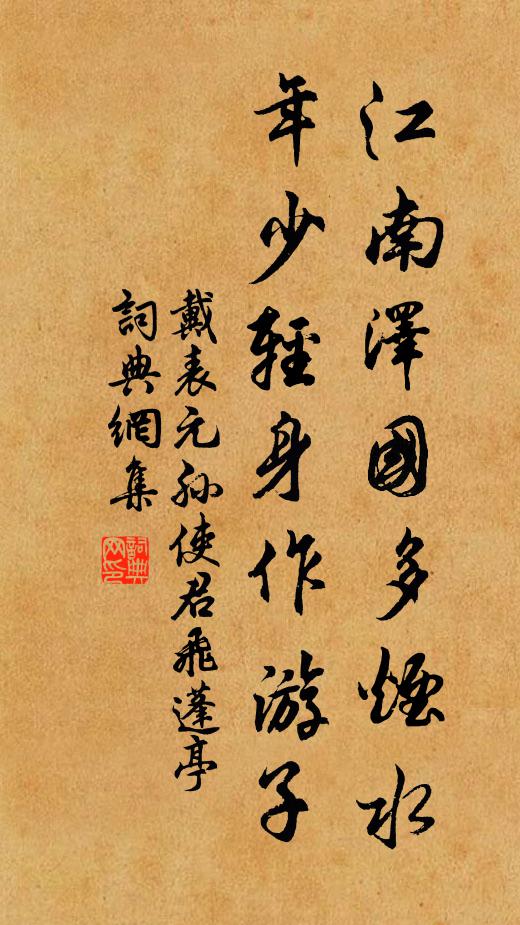 江南澤國多煙水
年少輕身作游子
戴表元孫使君飛蓬亭
詞典網集
詞典
网印